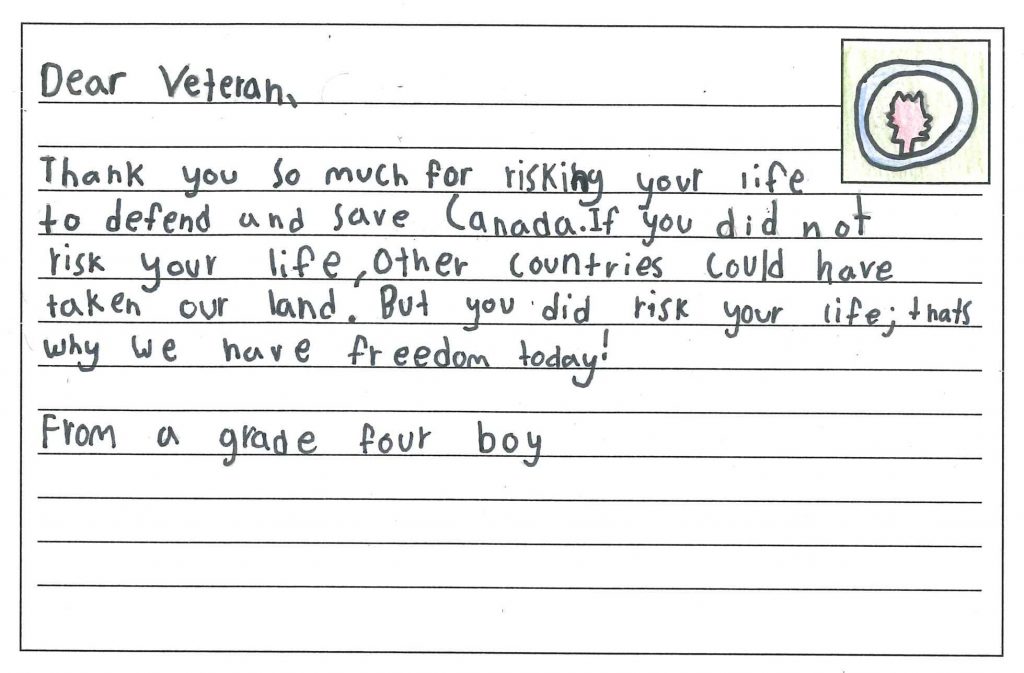 Dear Veteran,
Thank you so much for risking your life
to defend and save Canada. If you did not
risk your life, other countries could have
taken our land. But you did risk your life; thats
why we have freedom today!
From a grade four boy